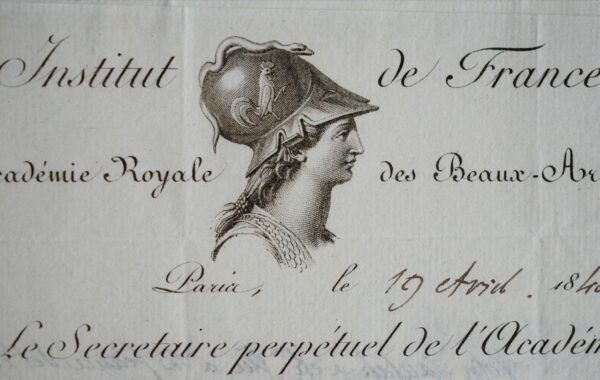 Institut de France
cadémie Royale des Beaux-Ar
Paris, le 19 Avril. 184
Le Secretaire perpétuel de l'Académ